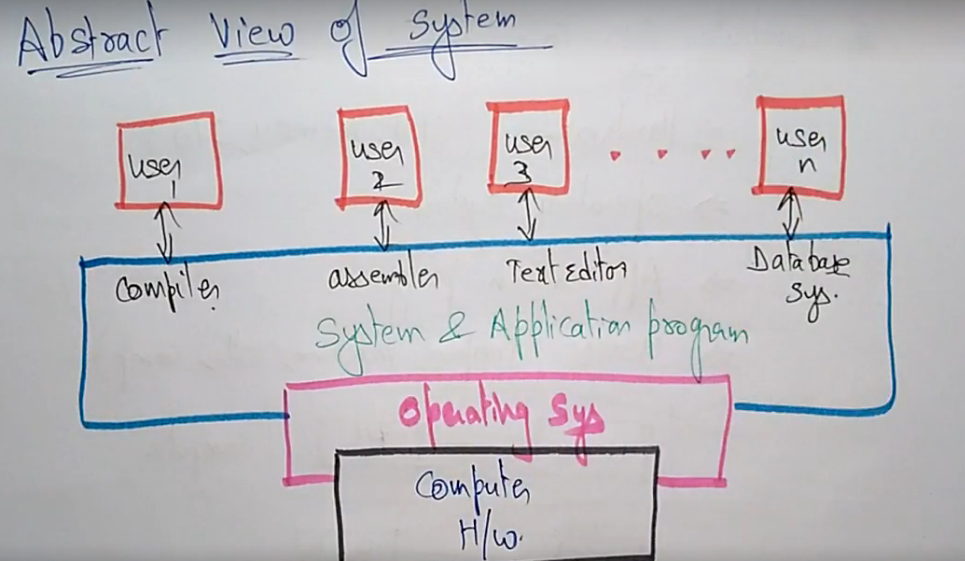 Abstract View of System
user
1
user
2
user
3
user
n
Compiler
assembler
Text Editor
Database
Sys.
System & Application program
Operating Sys
Computer
H/w.